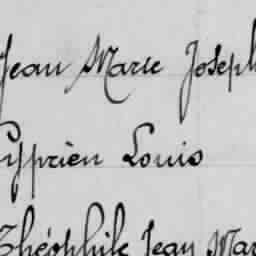 Jean Marie Joseph
Cyprien Louis
Théophile Jean Mar